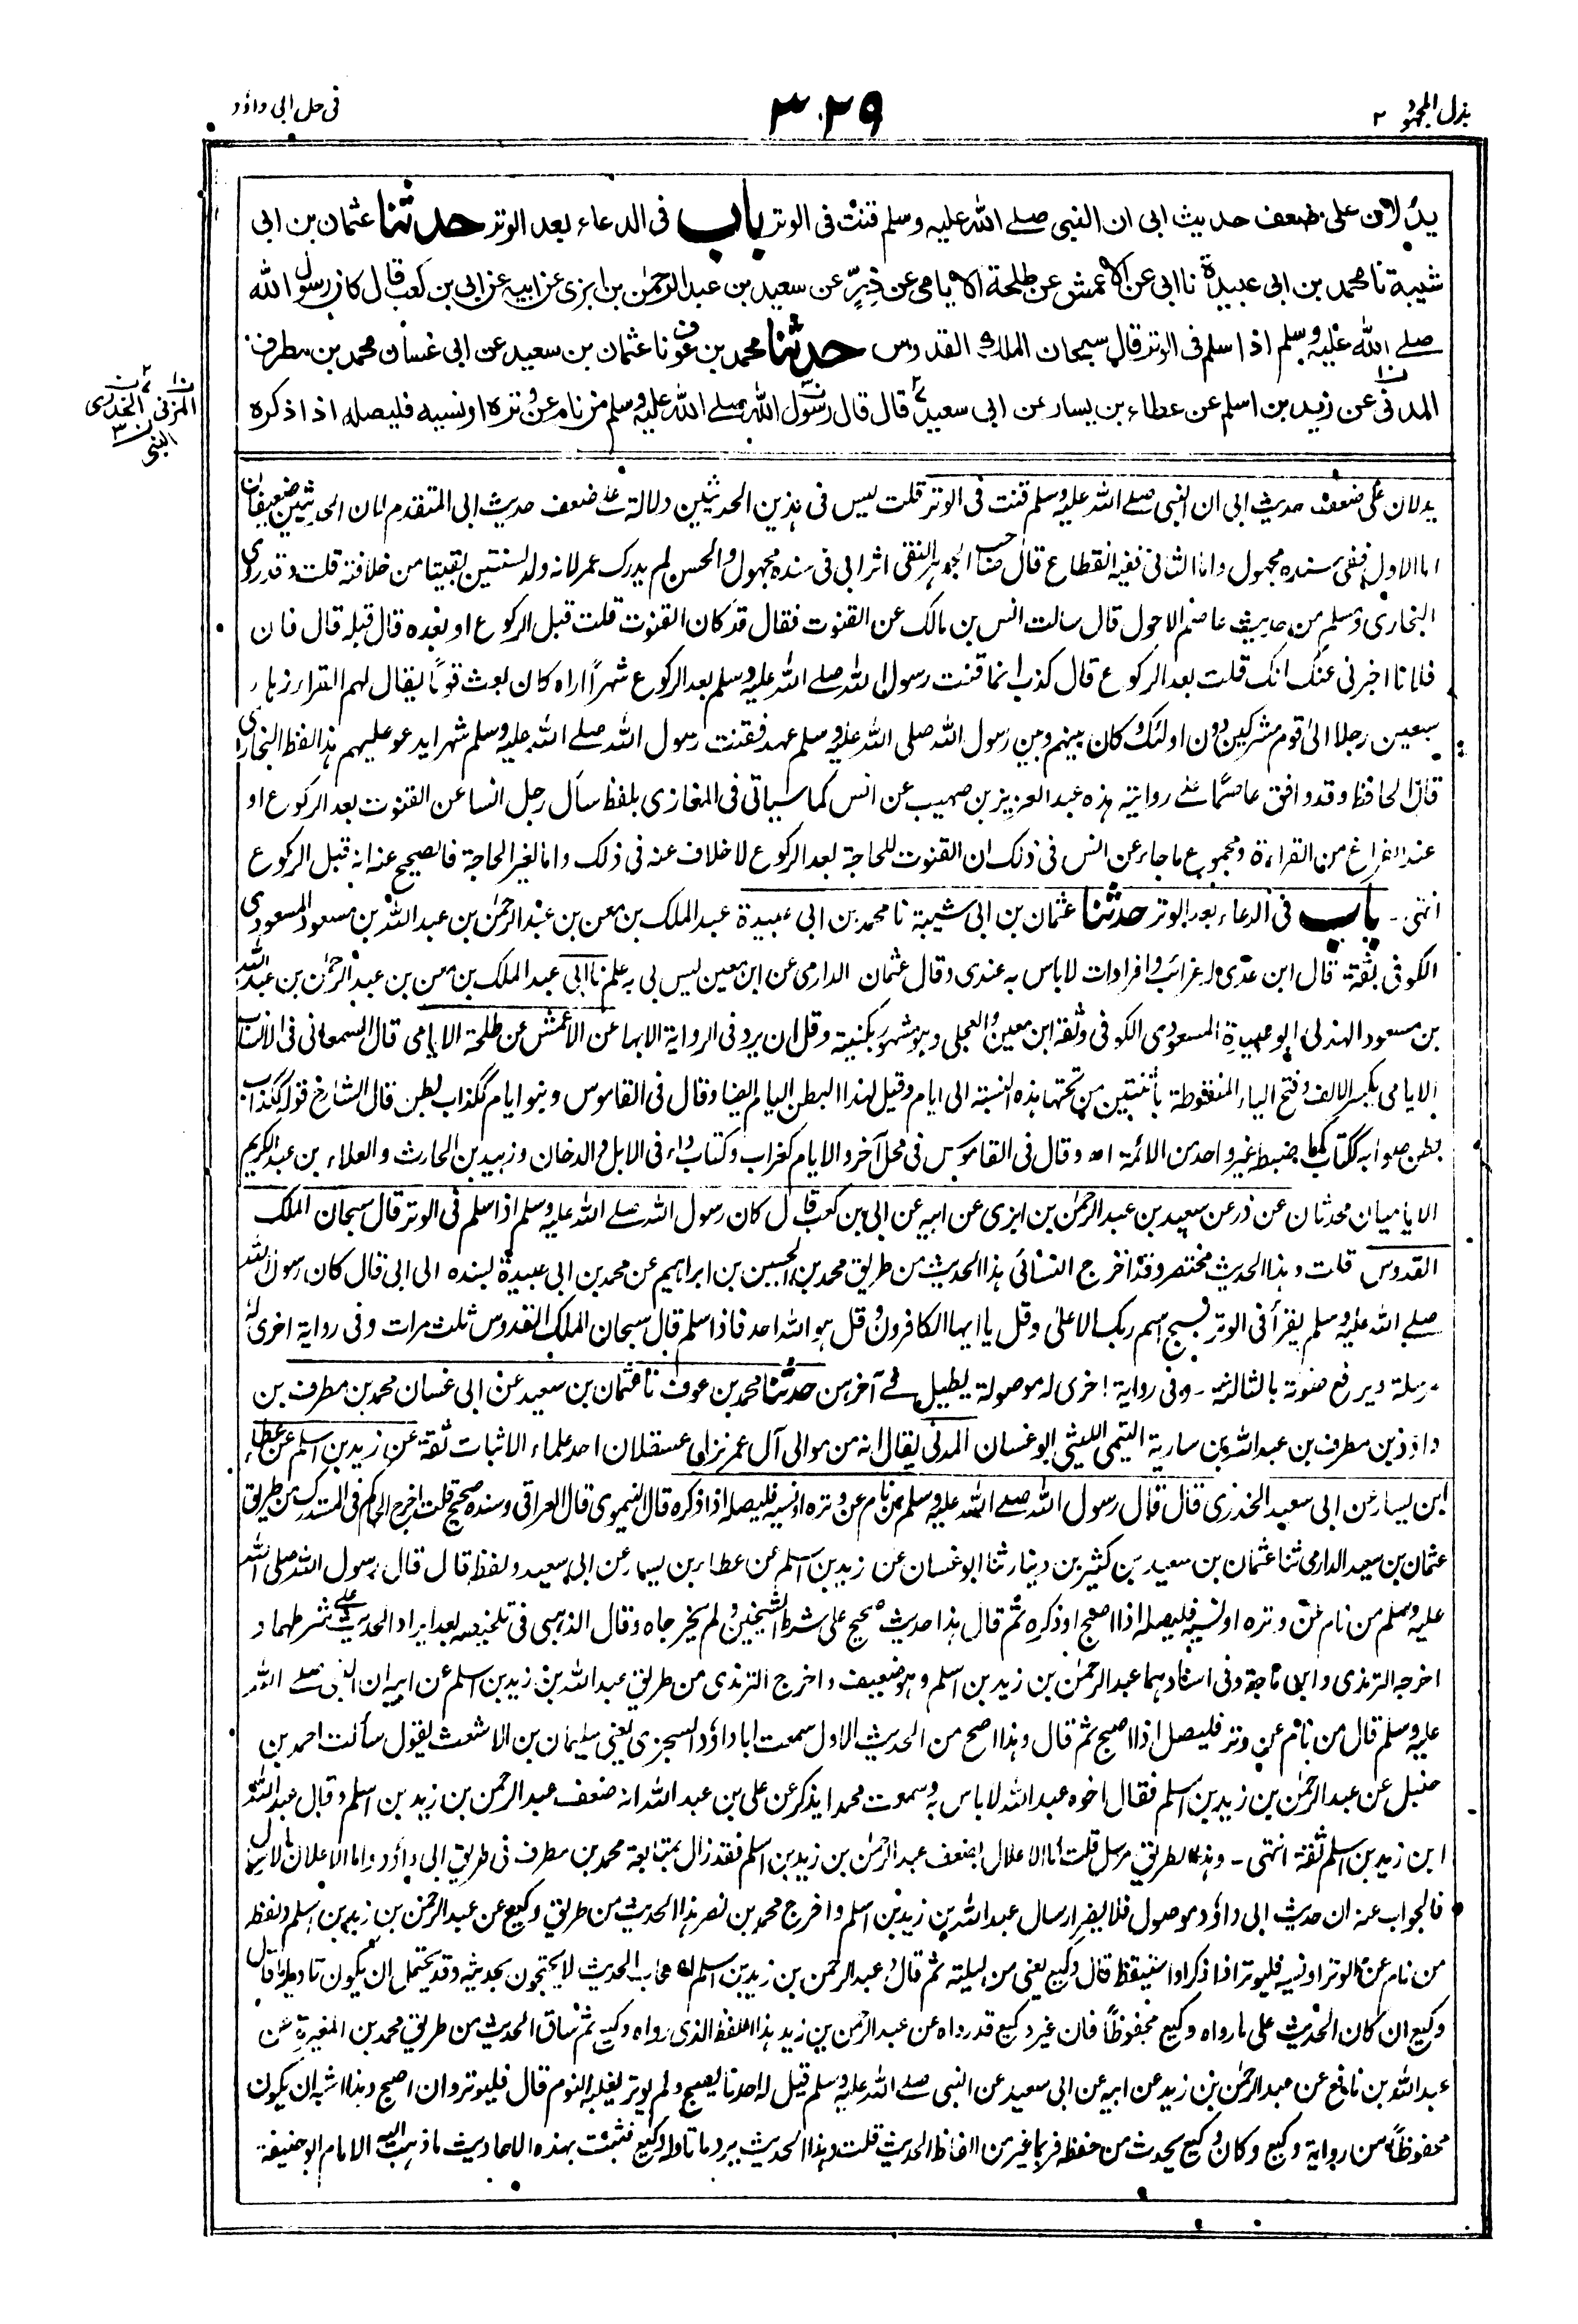 بذل المجهود ٢
٣٢٩
فى حل ابى داؤد
يدلان على ضعف حديث ابى ان النبى صلے الله عليه وسلم قنت فى الوتر باب فى الدعاء بعد الوتر حدثنا عثمان بن ابى
شيبة نا محمد بن ابى عبيدة نا ابى عن الاعمش عن طلحة الايامى عن ذرٍّ عن سعيد بن عبد الرحمٰن بن ابزى عن ابيه عن ابى بن كعب قال كان رسول الله
صلے الله عليه وسلم اذا سلم فى الوتر قال سبحان الملك القدوس حدثنا محمد بن عوف نا عثمان بن سعيد عن ابى غسان محمد بن مطرف
المدنى عن زيد بن اسلم عن عطاء بن يسار عن ابى سعيد قال قال رسول الله صلے الله عليه وسلم من نام عن وتره او نسيه فليصله اذا ذكره
المزنى الخدرى
النبى
يدلان على ضعف حديث ابى ان النبى صلے الله عليه وسلم قنت فى الوتر قلت ليس فى هذين الحديثين دلالة على ضعف حديث ابى المتقدم لان الحديثين ضعيفان
اما الاول ففى سنده مجهول واما الثانى ففيه انقطاع قال صاحب الجوهر النقى اثر ابى فى سنده مجهول والحسن لم يدرك عمر لانه ولد لسنتين بقيتا من خلافته قلت وقد روى
البخارى ومسلم من حديث عاصم الاحول قال سالت انس بن مالك عن القنوت فقال قد كان القنوت قلت قبل الركوع او بعده قال قبله قال فان
فلانا اخبرنى عنك انك قلت بعد الركوع قال كذب انما قنت رسول الله صلے الله عليه وسلم بعد الركوع شهراً اراه كان بعث قوماً يقال لهم القراء زهاء
سبعين رجلا الى قوم مشركين دون اولئك وكان بينهم وبين رسول الله صلى الله عليه وسلم عهد فقنت رسول الله صلے الله عليه وسلم شهرا يدعو عليهم هذا لفظ البخارى
قال الحافظ وقد وافق عاصماً على روايته هذه عبد العزيز بن صهيب عن انس كما سياتى فى المغازى بلفظ سأل رجل انسا عن القنوت بعد الركوع او
عند الفراغ من القراءة ومجموع ما جاء عن انس فى ذلك ان القنوت للحاجة بعد الركوع لا خلاف عنه فى ذلك واما لغير الحاجة فالصحيح عنه انه قبل الركوع
انتهى۔ باب فى الدعاء بعد الوتر حدثنا عثمان بن ابى شيبة نا محمد بن ابى عبيدة عبد الملك بن معن بن عبد الرحمٰن بن عبد الله بن مسعود المسعودى
الكوفى ثقة قال ابن عدى له غرائب وافرادات لا باس به عندى وقال عثمان الدارمى عن ابن معين ليس لى به علم نا ابى عبد الملك بن معن بن عبد الرحمٰن بن عبد الله
بن مسعود الهذلى ابو عبيدة المسعودى الكوفى وثقه ابن معين والعجلى وهو مشهور بكنيته وقل ان يرد فى الرواية الا بها عن الاعمش عن طلحة الايامى قال السمعانى فى الانساب
الايامى بكسر الالف وفتح الياء المنقوطة باثنتين من تحتها هذه النسبة الى ايام وقيل لهذا البطن اليام ايضا وقال فى القاموس وبنو ايام ككذاب بطن قال الشارخ قوله ككذاب
بطن صوابه ككتاب كما ضبطه غير واحد من الائمة اه وقال فى القاموس فى محل آخر والايام كغراب وكتاب داء فى الابل والدخان وزبيد بن الحارث والعلاء بن عبد الكريم
الاياميان محدثان عن ذر عن سعيد بن عبد الرحمٰن بن ابزى عن ابيه عن ابى بن كعب قال كان رسول الله صلے الله عليه وسلم اذا سلم فى الوتر قال سبحان الملك
القدوس قلت وهذا الحديث مختصر وقد اخرج النسائى هذا الحديث من طريق محمد بن الحسين بن ابراهيم عن محمد بن ابى عبيدة بسنده الى ابى قال كان رسول الله
صلے الله عليه وسلم يقرأ فى الوتر بسبح اسم ربك الاعلى وقل يا ايها الكافرون وقل هو الله احد فاذا سلم قال سبحان الملك القدوس ثلث مرات وفى رواية اخرى له
مرسلة ويرفع صوته بالثالثة۔ وفى رواية اخرى له موصولة يطيل فى آخرهن حدثنا محمد بن عوف نا عثمان بن سعيد عن ابى غسان محمد بن مطرف بن
داؤد بن مطرف بن عبد الله بن سارية التيمى الليثى ابو غسان المدنى يقال انه من موالى آل عمر نزل عسقلان احد علماء الاثبات ثقة عن زيد بن اسلم عن عطاء
ابن يسار عن ابى سعيد الخدرى قال قال رسول الله صلے الله عليه وسلم من نام عن وتره او نسيه فليصله اذا ذكره قال النيموى قال العراقى وسنده صحيح قلت اخرج الحاكم فى المستدرك من طريق
عثمان بن سعيد الدارمى ثنا عثمان بن سعيد بن كثير بن دينار ثنا ابو غسان عن زيد بن اسلم عن عطاء بن يسار عن ابى سعيد ولفظه قال قال رسول الله صلى الله
عليه وسلم من نام عن وتره او نسيه فليصله اذا اصبح او ذكره ثم قال هذا حديث صحيح على شرط الشيخين ولم يخرجاه وقال الذهبى فى تلخيصه بعد ايراد الحديث على شرطهما و
اخرجه الترمذى وابن ماجة وفى اسنادهما عبد الرحمٰن بن زيد بن اسلم وهو ضعيف واخرج الترمذى من طريق عبد الله بن زيد بن اسلم عن ابيه ان النبى صلے الله
عليه وسلم قال من نام عن وتره فليصل اذا اصبح ثم قال وهذا اصح من الحديث الاول سمعت ابا داؤد السجزى يعنى سليمان بن الاشعث يقول سألت احمد بن
حنبل عن عبد الرحمٰن بن زيد بن اسلم فقال اخوه عبد الله لا باس به وسمعت محمدا يذكر عن على بن عبد الله انه ضعف عبد الرحمن بن زيد بن اسلم وقال عبد الله
ابن زيد بن اسلم ثقة انتهى۔ وهذا الطريق مرسل قلت اما الاعلال بضعف عبد الرحمٰن بن زيد بن اسلم فقد زال بمتابعة محمد بن مطرف فى طريق ابى داؤد واما الاعلال بالارسال
فالجواب عنه ان حديث ابى داؤد موصول فلا يضر ارسال عبد الله بن زيد بن اسلم واخرج محمد بن نصر هذا الحديث من طريق وكيع عن عبد الرحمٰن بن زيد بن اسلم ولفظه
من نام عن الوتر او نسيه فليوتر اذا ذكر او استيقظ قال وكيع يعنى من ليلته ثم قال وعبد الرحمن بن زيد بن اسلم اصحاب الحديث لا يحتجون بحديثه وقد يحتمل ان يكون تاويله ما قال
وكيع ان كان الحديث على ما رواه وكيع محفوظاً فان غير وكيع قد رواه عن عبد الرحمن بن زيد هذا اللفظ الذى رواه وكيع ثم ساق الحديث من طريق محمد بن المغيرة عن
عبد الله بن نافع عن عبد الرحمٰن بن زيد عن ابيه عن ابى سعيد عن النبى صلے الله عليه وسلم قيل له احدنا يصبح ولم يوتر يغلبه النوم قال فليوتر وان اصبح وهذا اشبه ان يكون
محفوظاً من رواية وكيع وكان وكيع يحدث من حفظه فربما غير من الفاظ الحديث قلت وهذا الحديث يرد ما تاوله وكيع فثبت بهذه الاحاديث ما ذهب اليه الامام ابو حنيفة